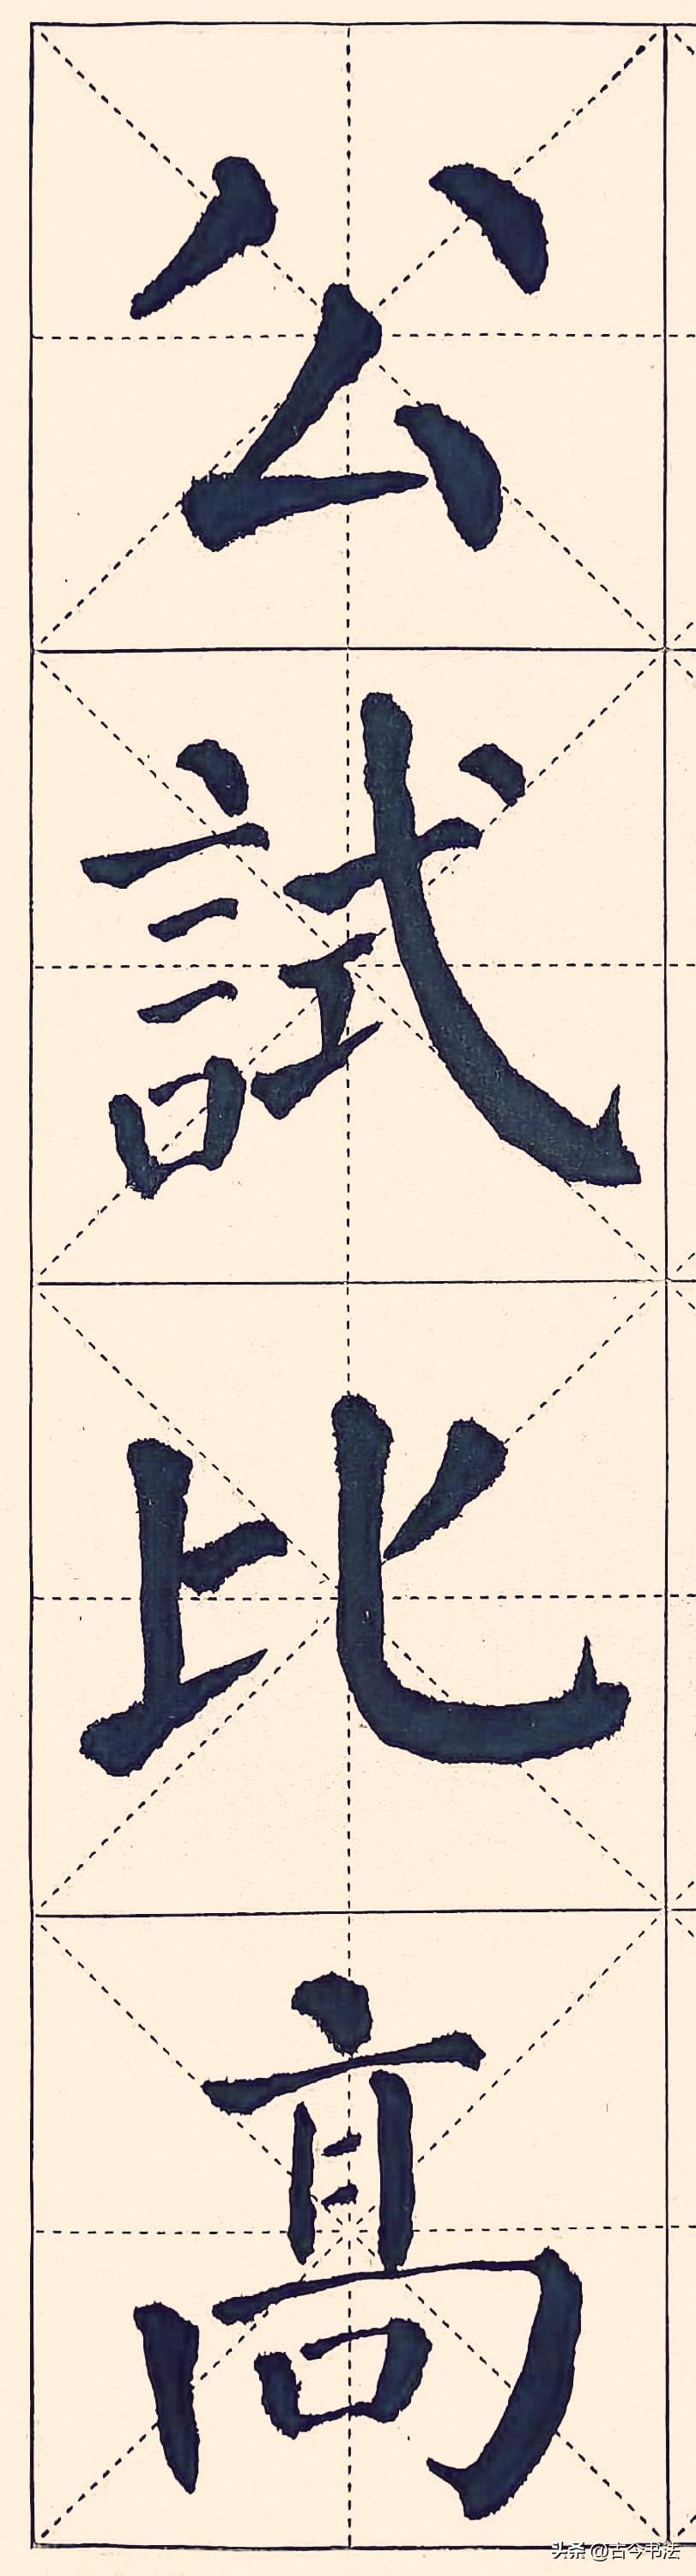 公
試
比
髙
头条 @古今书法